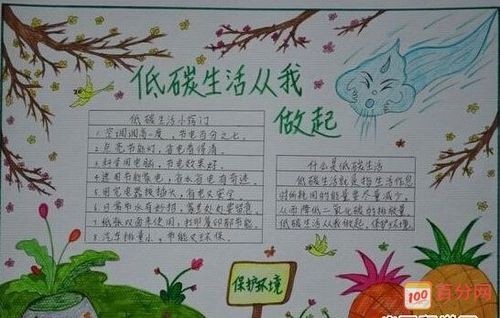 低碳生活从我
做起
低碳生活小窍门
1.空调调高一度,节电百分之七。
2.点亮节能灯,省电有得清
3.科学用电脑,节电效果好。
4.选用节能家电,省水省电有奇迹。
5.用完电器拔插头,省电又安全
6.日常节水有妙招,
7.纸张双面来使用,
8.汽车排量小,节能又环保。
什么是低碳生活
低碳生活就是指生活作息
时所耗用的能量要尽量减少,
从而降低二氧化碳的排放量。
低碳生活从我做起,保护环境。
保护环境
100
百分网